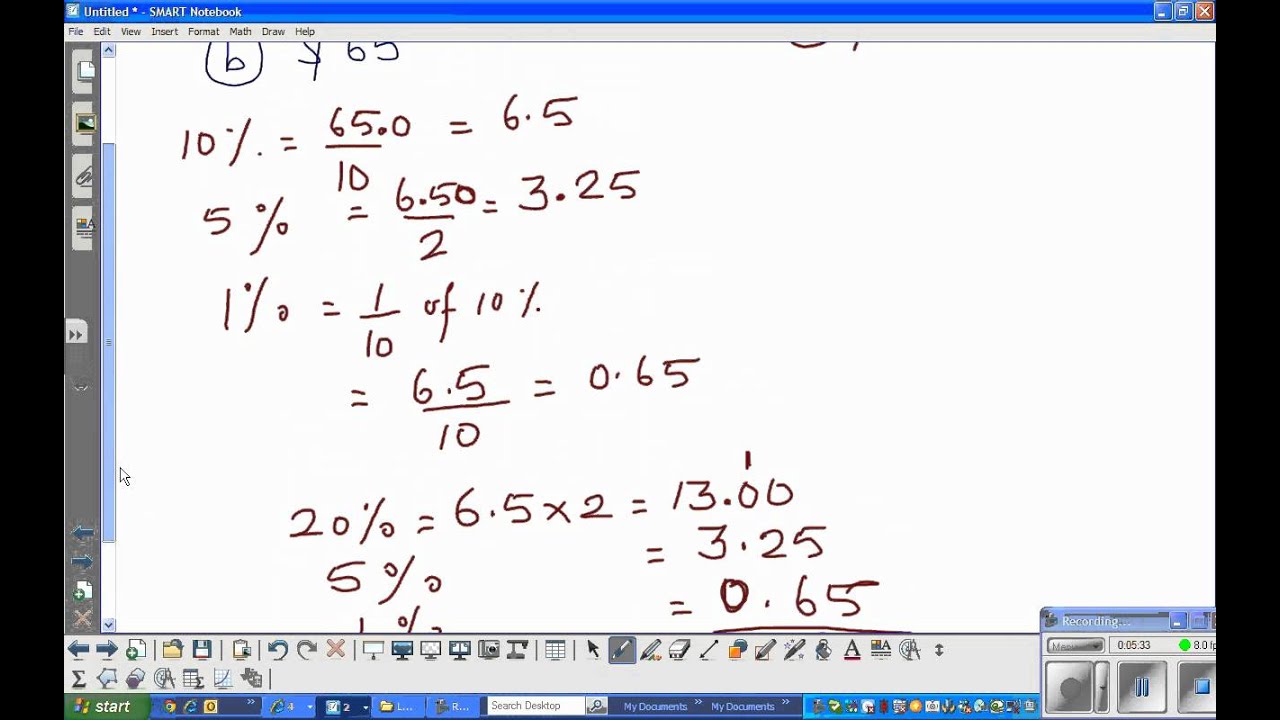 Untitled * - SMART Notebook
File Edit View Insert Format Math Draw Help
b 65
10% = 65.0/10 = 6.5
5% = 6.50/2 = 3.25
1% = 1/10 of 10%
= 6.5/10 = 0.65
1
20% = 6.5 × 2 = 13.00
5% = 3.25
1% = 0.65
Recording...
Menu
0:05:33
8.0 f
A
Σ
start
4
2
L...
R...
Search Desktop
My Documents
My Documents